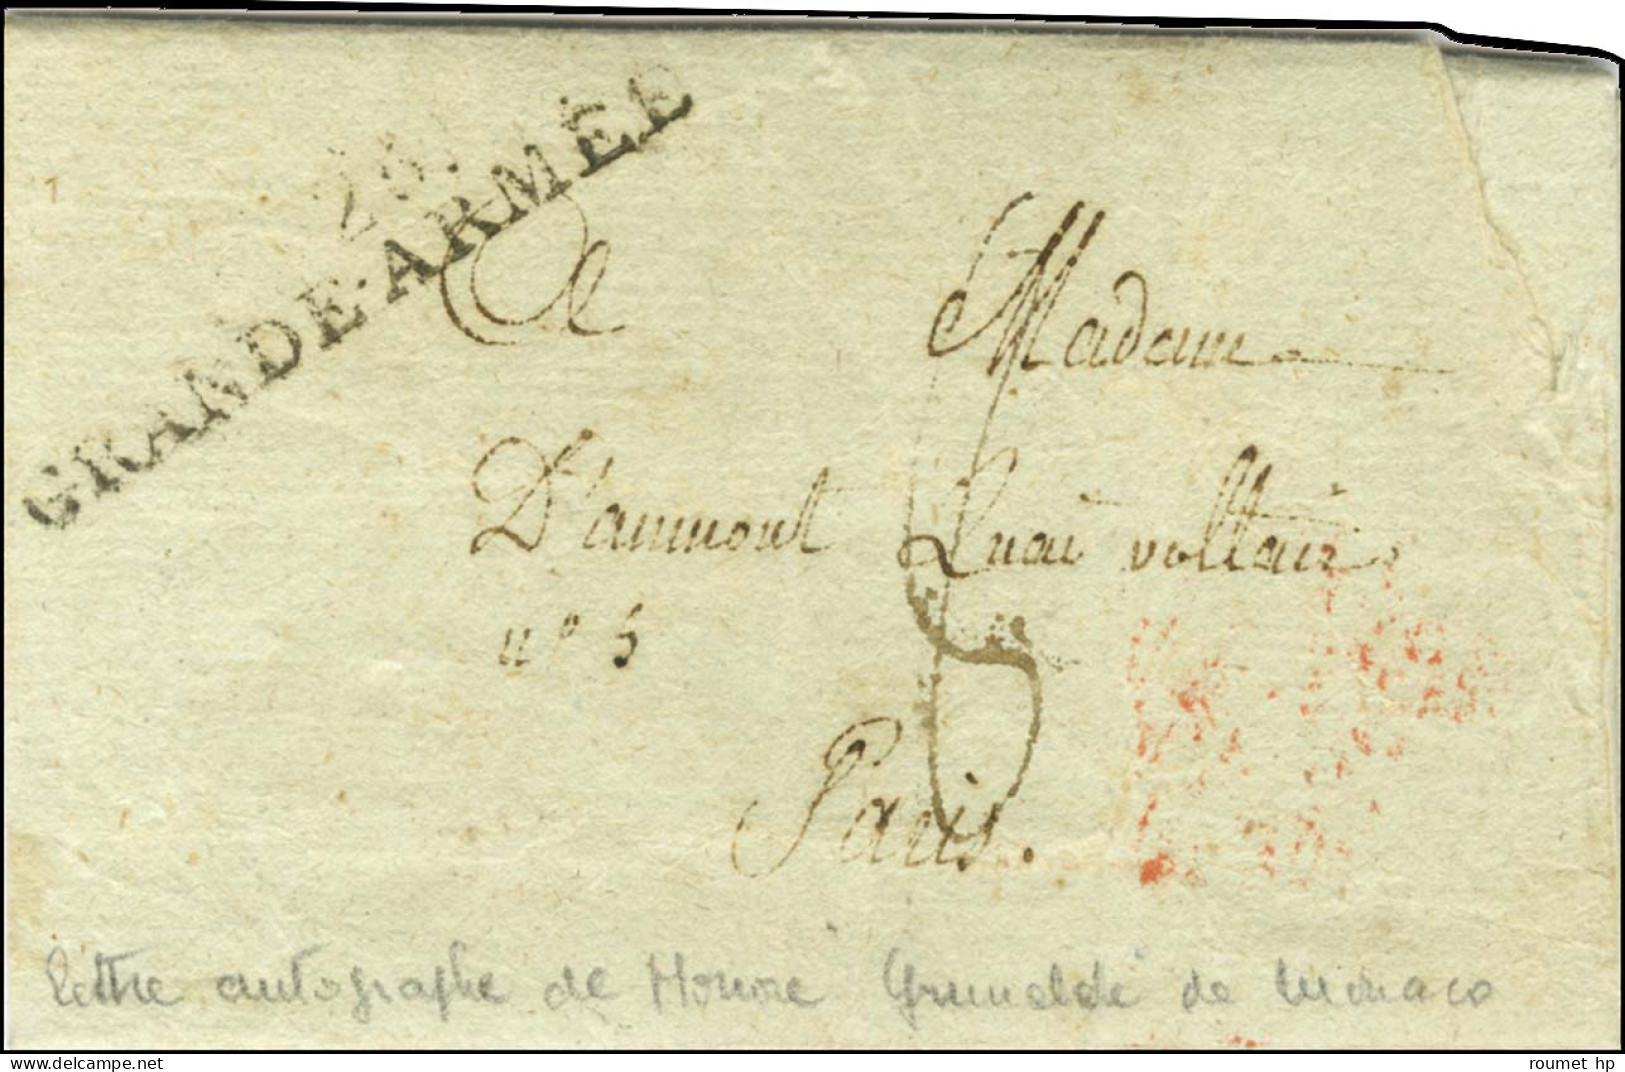 GRANDE-ARMÉE
A Madame
D'aumont Quai voltaire
n° 5
Paris.
lettre autographe de Honoré Grimaldi de Monaco
www.delcampe.net
roumet hp